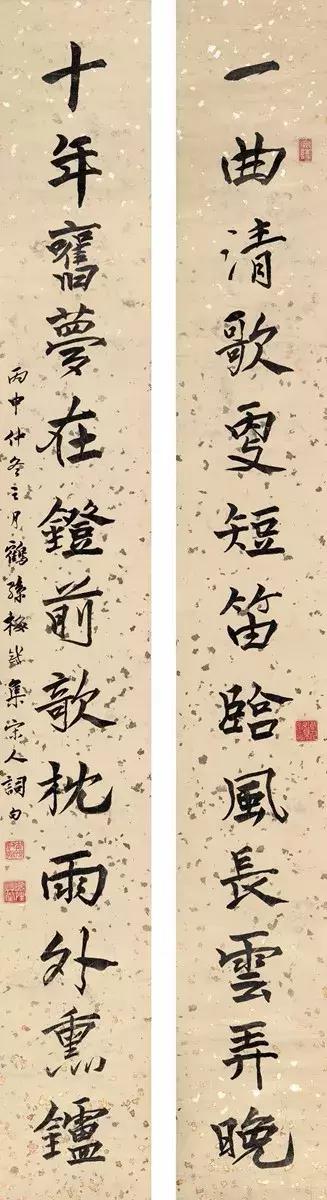 一曲清歌更短笛臨風長雲弄晚
十年舊夢在鐙前欹枕雨外熏鑪
丙申仲冬之月鶴孫集宋人詞句